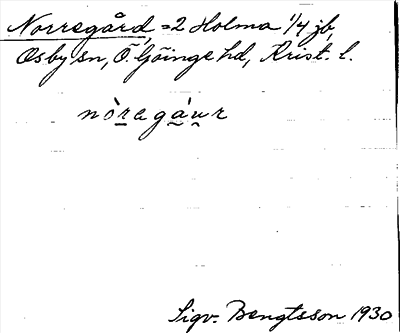 Norregård = 2 Holma 1/4 jb,
Osby sn, Ö. Göinge hd, Krist. l.
nòragáur
Sigv. Bengtsson 1930